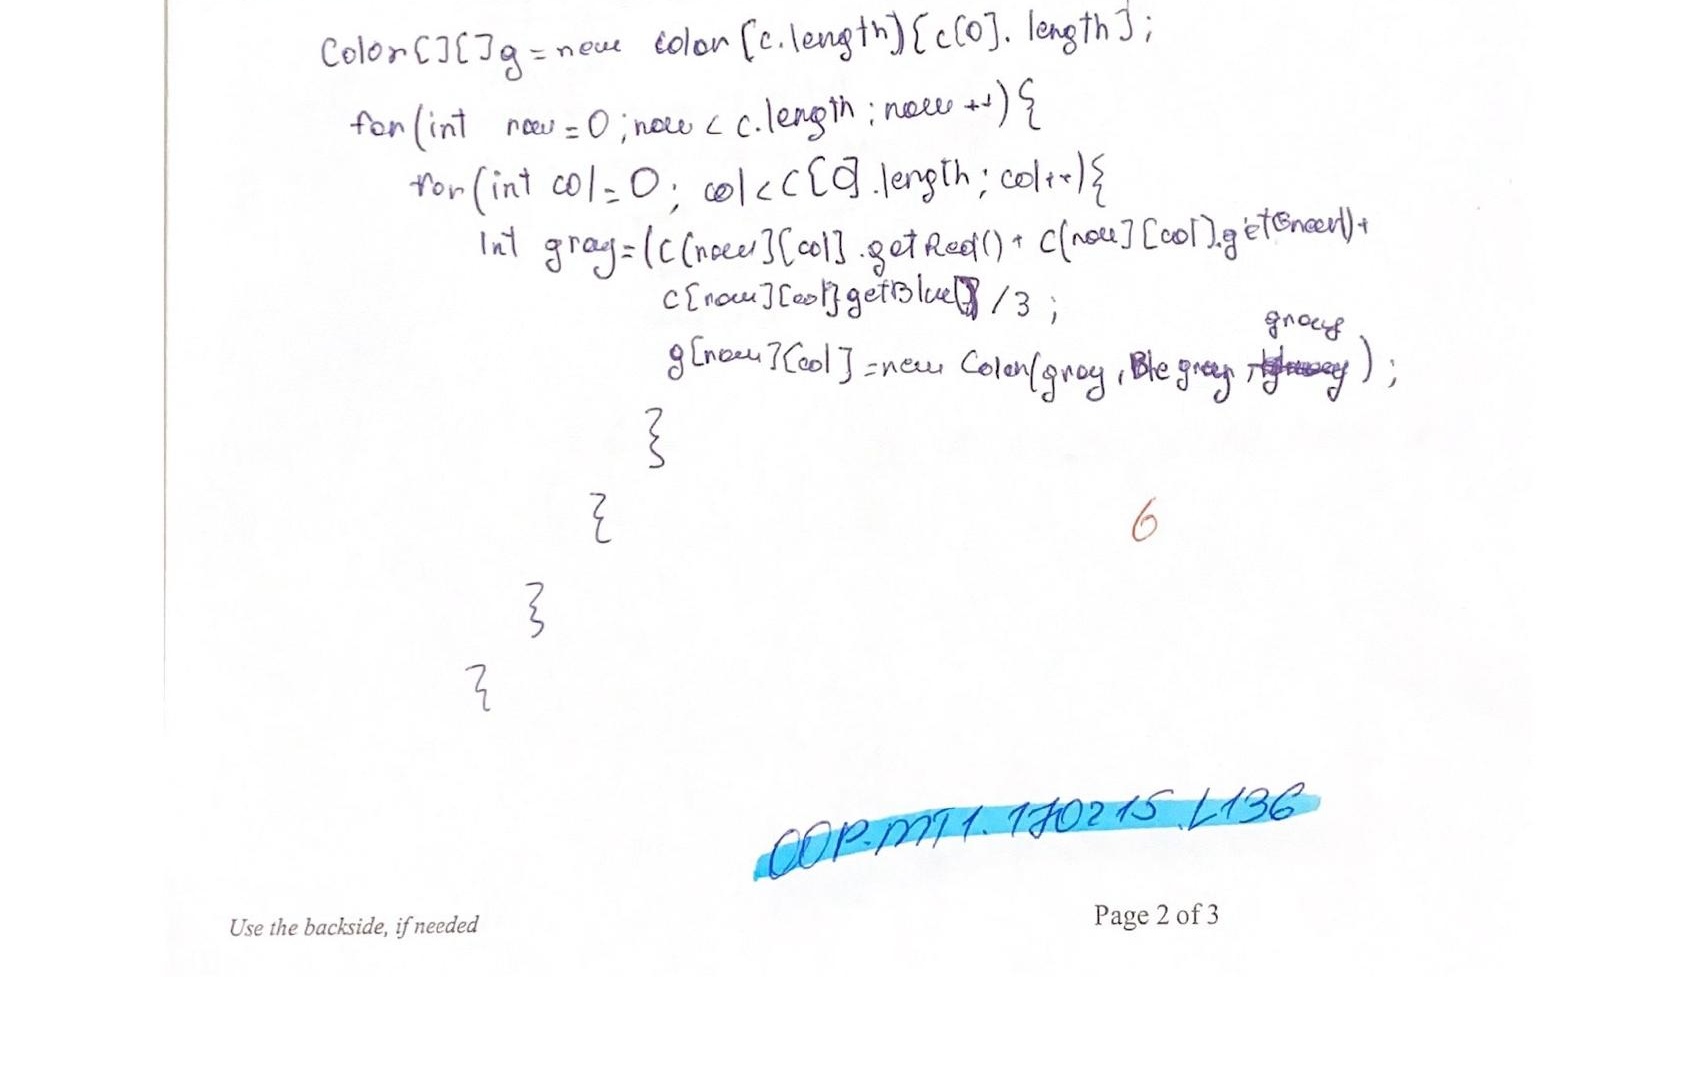 Color[][]g = new color[c.length][c[0].length];
for(int row=0;row < c.length;row++){
for(int col=0; col<c[0].length;col++){
int gray=(c[row][col].getRed()+c[row][col].getGreen()+
c[row][col]getBlue()) /3 ;
gray
g[row][col]=new Color(gray, gray );
}
{
6
}
{
OOP.MT1.170215.L136
Use the backside, if needed
Page 2 of 3